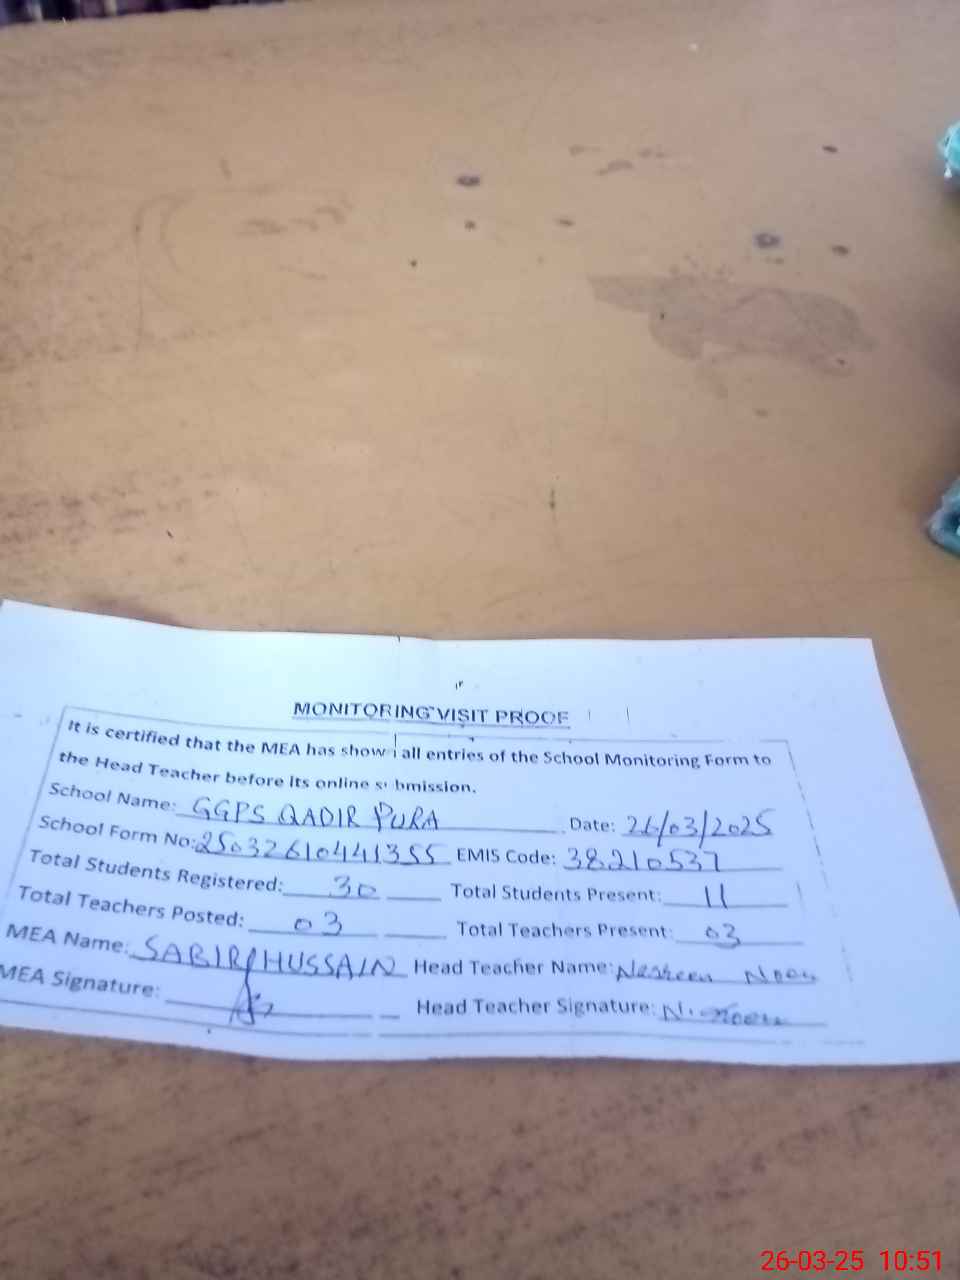 MONITORING VISIT PROOF
It is certified that the MEA has shown all entries of the School Monitoring Form to
the Head Teacher before its online submission.
School Name: GGPS QADIR PURA Date: 26/03/2025
School Form No: 25032610441355 EMIS Code: 38210537
Total Students Registered: 30 Total Students Present: 11
Total Teachers Posted: 03 Total Teachers Present: 03
MEA Name: SABIR HUSSAIN Head Teacher Name: Noon
MEA Signature: Head Teacher Signature: N. Noon
26-03-25 10:51